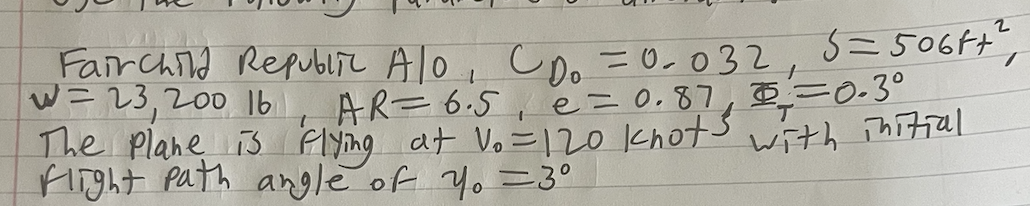 Use the following
Fairchild Republic A10, C_D₀ = 0.032, S = 506 ft²,
W = 23,200 lb, AR = 6.5, e = 0.87, Φ_T = 0.3°
The plane is flying at V₀ = 120 knots with initial
flight path angle of γ₀ = 3°